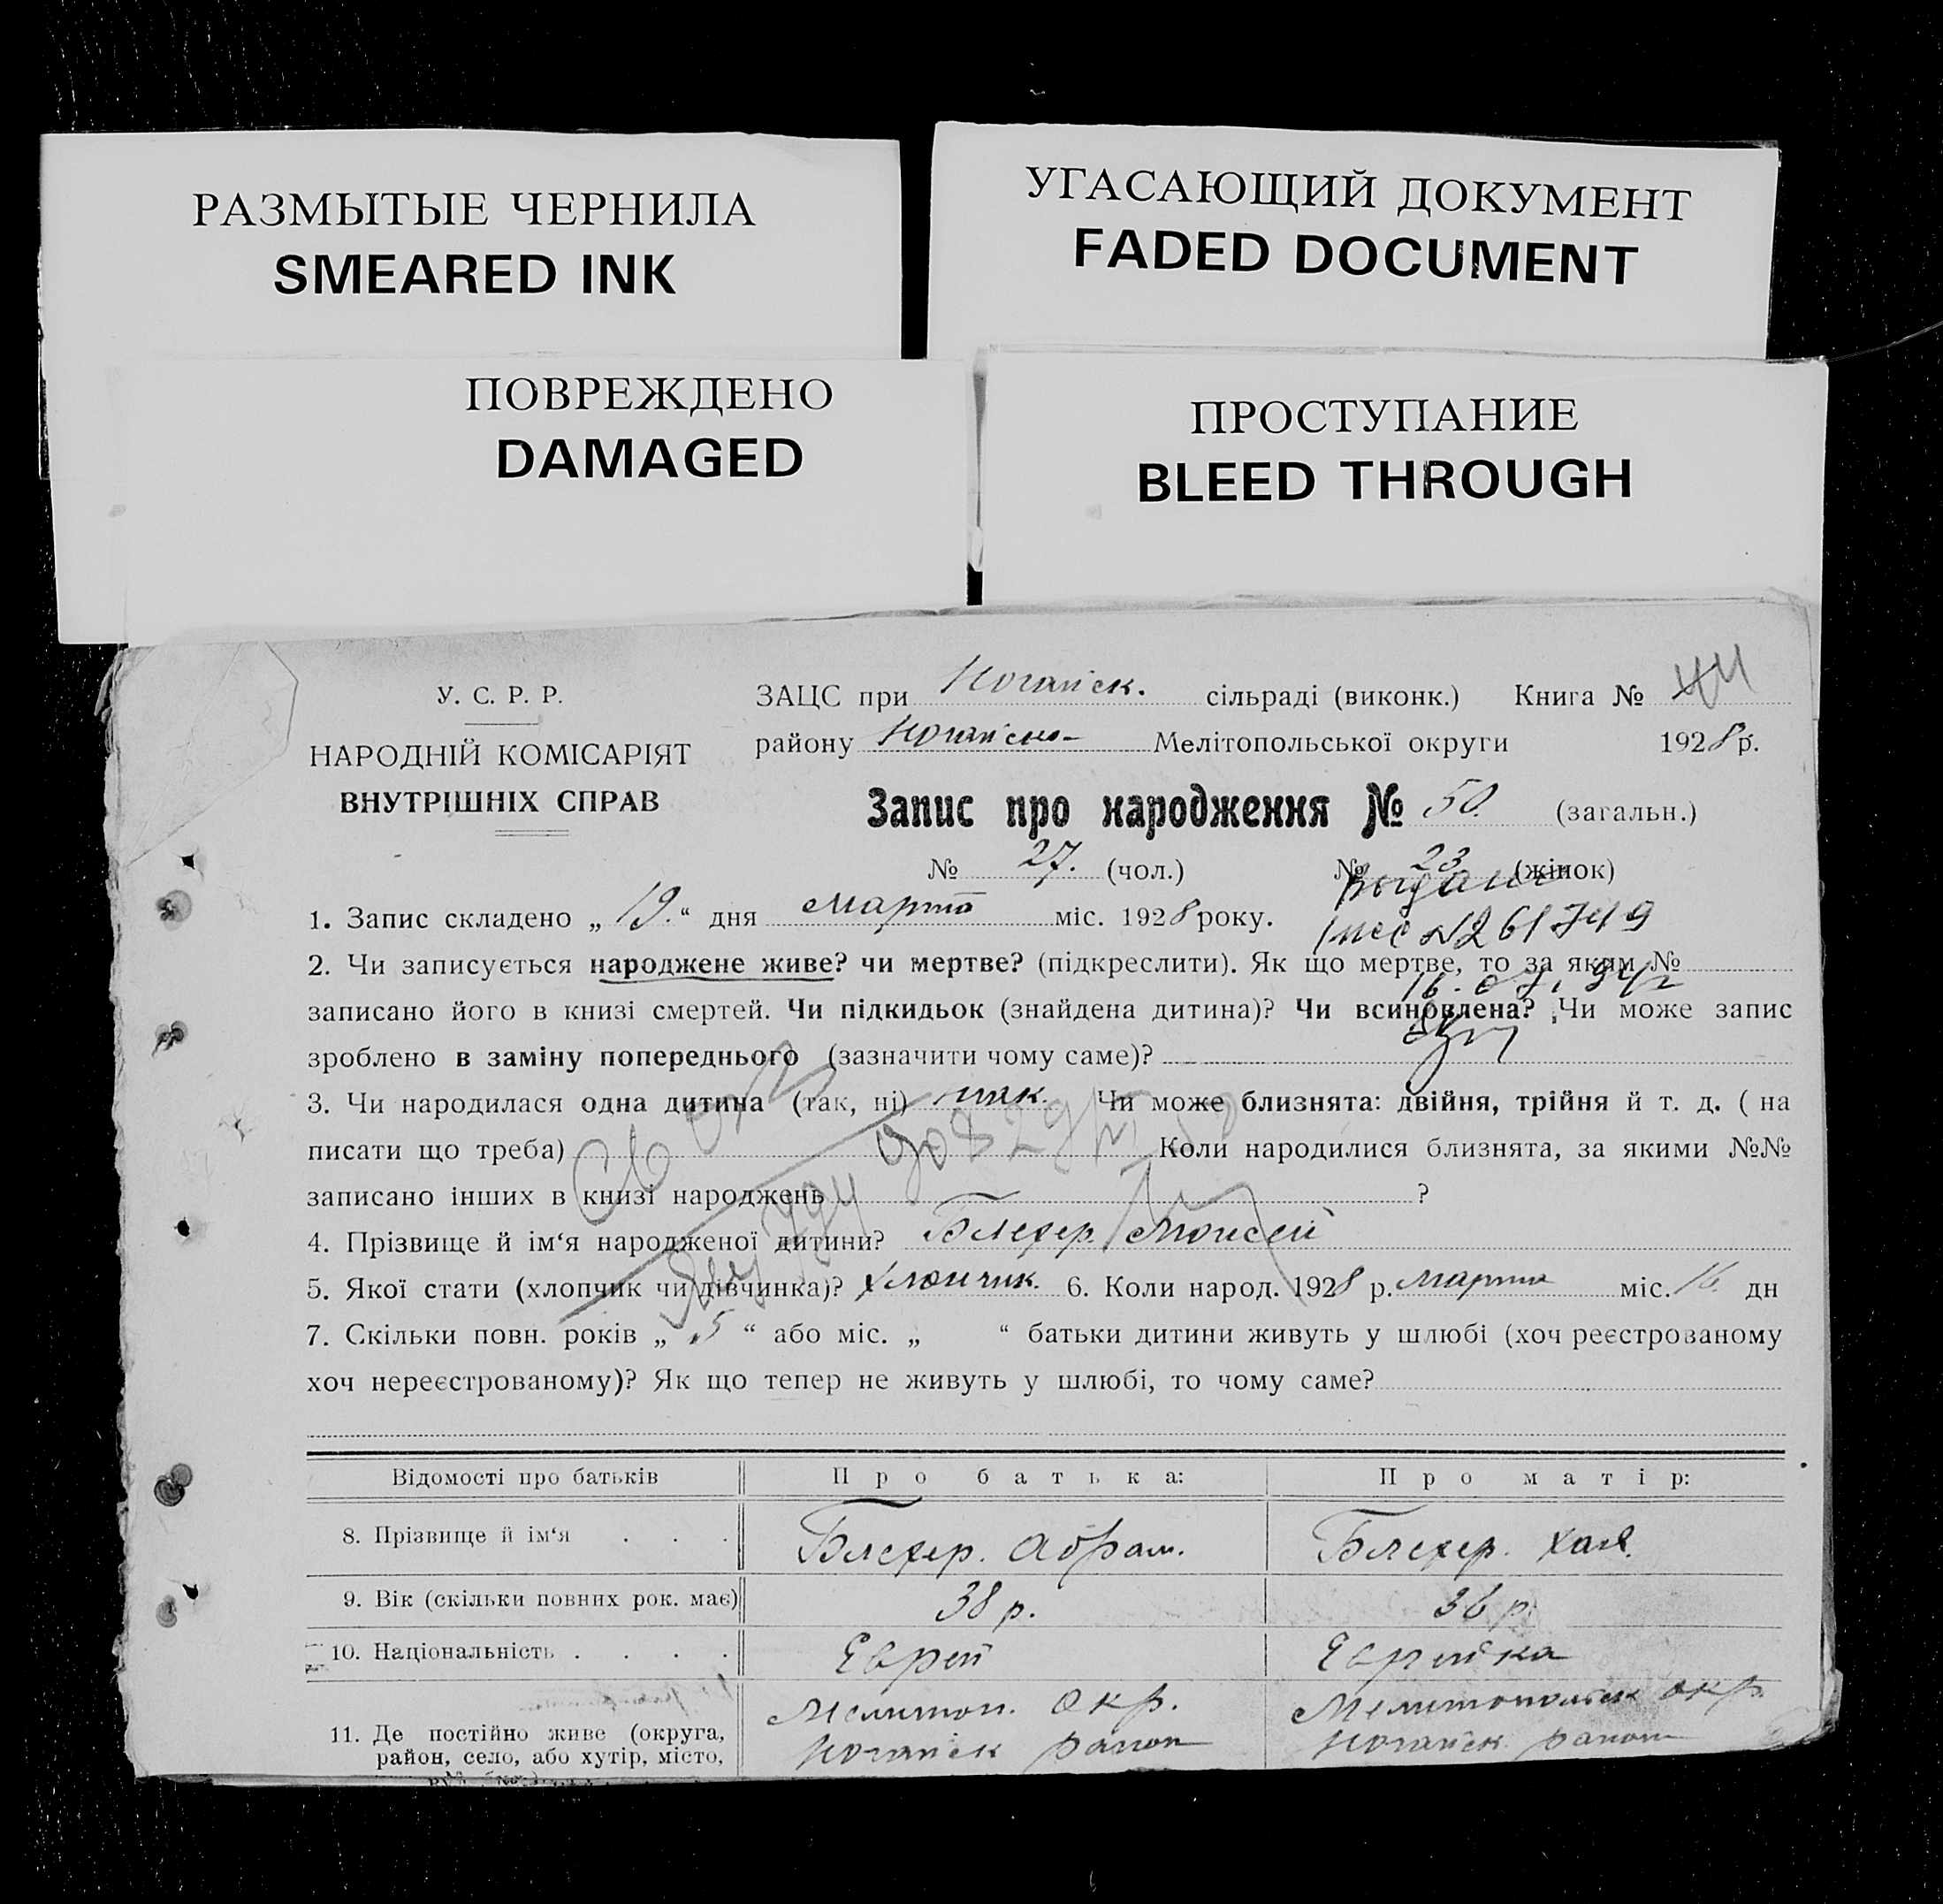 РАЗМЫТЫЕ ЧЕРНИЛА
SMEARED INK
УГАСАЮЩИЙ ДОКУМЕНТ
FADED DOCUMENT
ПОВРЕЖДЕНО
DAMAGED
ПРОСТУПАНИЕ
BLEED THROUGH
У. С. Р. Р.
НАРОДНІЙ КОМІСАРІЯТ
ВНУТРІШНІХ СПРАВ
ЗАЦС при Ногайск. сільраді (виконк.) Книга №
району Ногайско- Мелітопольської округи 1928 р.
Запис про народження № 50. (загальн.)
№ 27. (чол.) № 23 (жінок)
1. Запис складено „ 19. “ дня марта міс. 1928 року.
2. Чи записується народжене живе? чи мертве? (підкреслити). Як що мертве, то за яким №
записано його в книзі смертей. Чи підкидьок (знайдена дитина)? Чи всиновлена? Чи може запис
зроблено в заміну попереднього (зазначити чому саме)?
3. Чи народилася одна дитина (так, ні) так. Чи може близнята: двійня, трійня й т. д. ( на
писати що треба) Коли народилися близнята, за якими №№
записано інших в книзі народжень ?
4. Прізвище й ім‘я народженої дитини? Блехер Моисей
5. Якої стати (хлопчик чи дівчинка)? хлопчик. 6. Коли народ. 1928 р. марта міс. 16. дн
7. Скільки повн. років „ 5 “ або міс. „ “ батьки дитини живуть у шлюбі (хоч реєстрованому
хоч нереєстрованому)? Як що тепер не живуть у шлюбі, то чому саме?
Відомості про батьків Про батька: Про матір:
8. Прізвище й ім‘я . . . Блехер. Абрам. Блехер. Хая.
9. Вік (скільки повних рок. має) 38 р. 36 р.
10. Національність . . . . Еврей Еврейка
Мелитоп. Окр. Мелитопольск окр.
11. Де постійно живе (округа,
район, село, або хутір, місто, Ногайск район Ногайск район